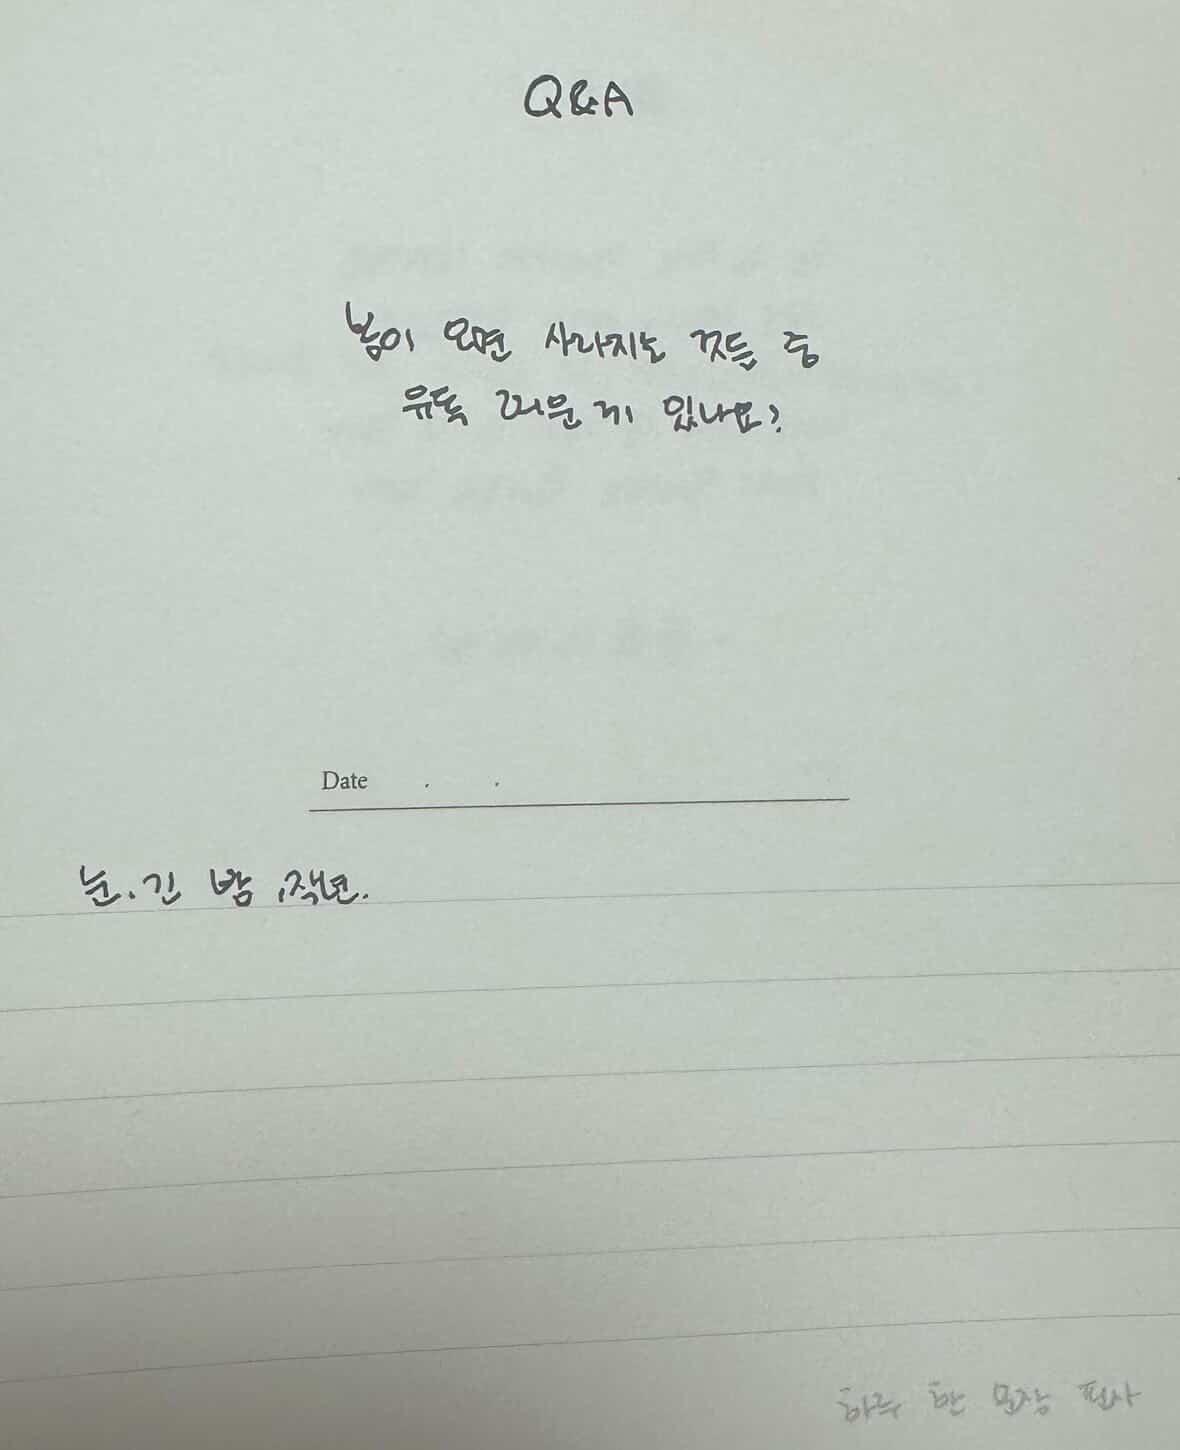 Q&A
봄이 오면 사라지는 것들 중
유독 꺼운 게 있나요?
Date . .
눈. 긴 밤, 작년.
하루 한 문장 필사